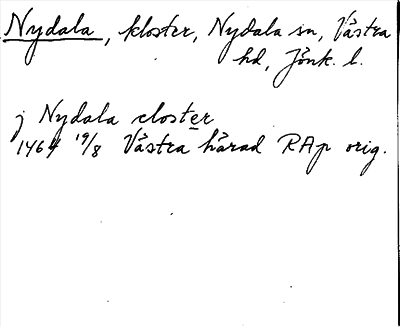 Nydala, kloster, Nydala sn, Västra
hd, Jönk. l.
j Nydala closter
1464 19/8 Västra härad RAp orig.